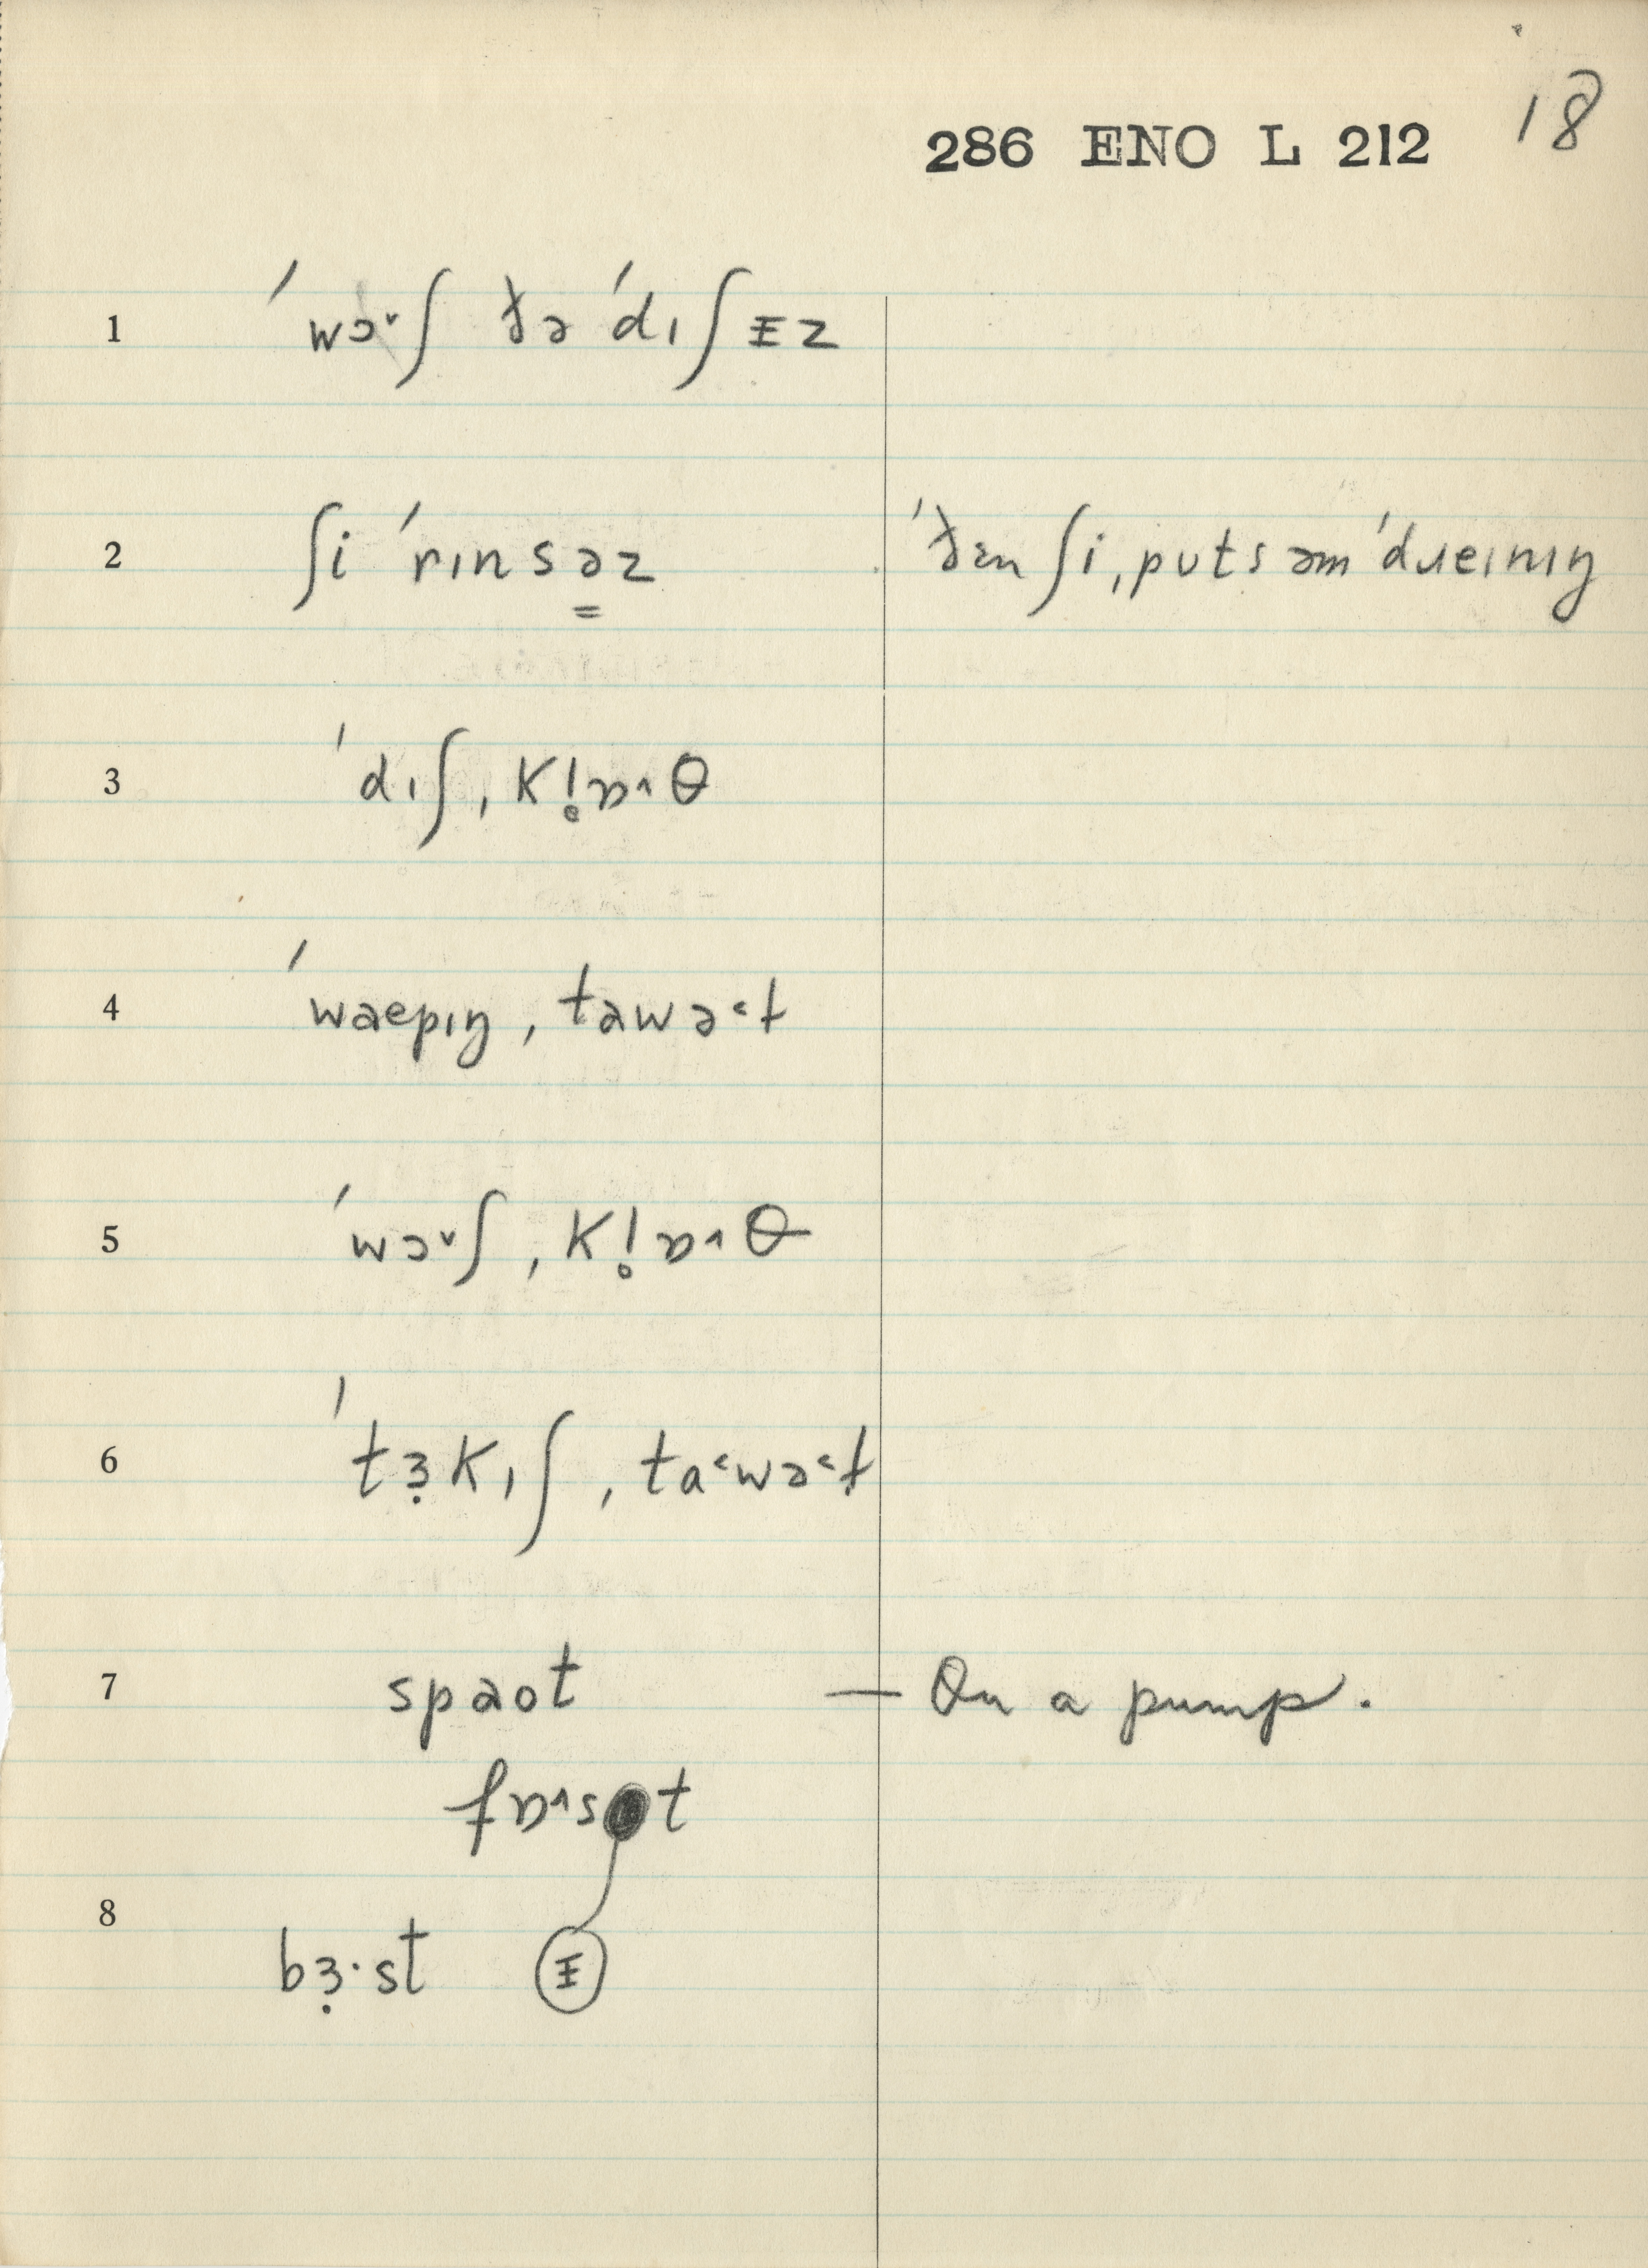 18
286 ENO L 212
1 ˈwɔ˅ʃ ðə ˈdɪʃᵻz
2 ʃi ˈrɪnsə̳z ˈðɛn ʃi ˌpʊts əm ˈdɹeɪnɪŋ
3 ˈdɪʃˌkl̥ɒ˄θ
4 ˈwaepɪŋˌtawə˂ɫ
5 ˈwɔ˅ʃˌkl̥ɒ˄θ
6 ˈtɜ̣kɪʃˌta˂wə˂ɫ
7 spaot — On a pump.
fɒ˄s t
8 bɜ̣·st ᵻ